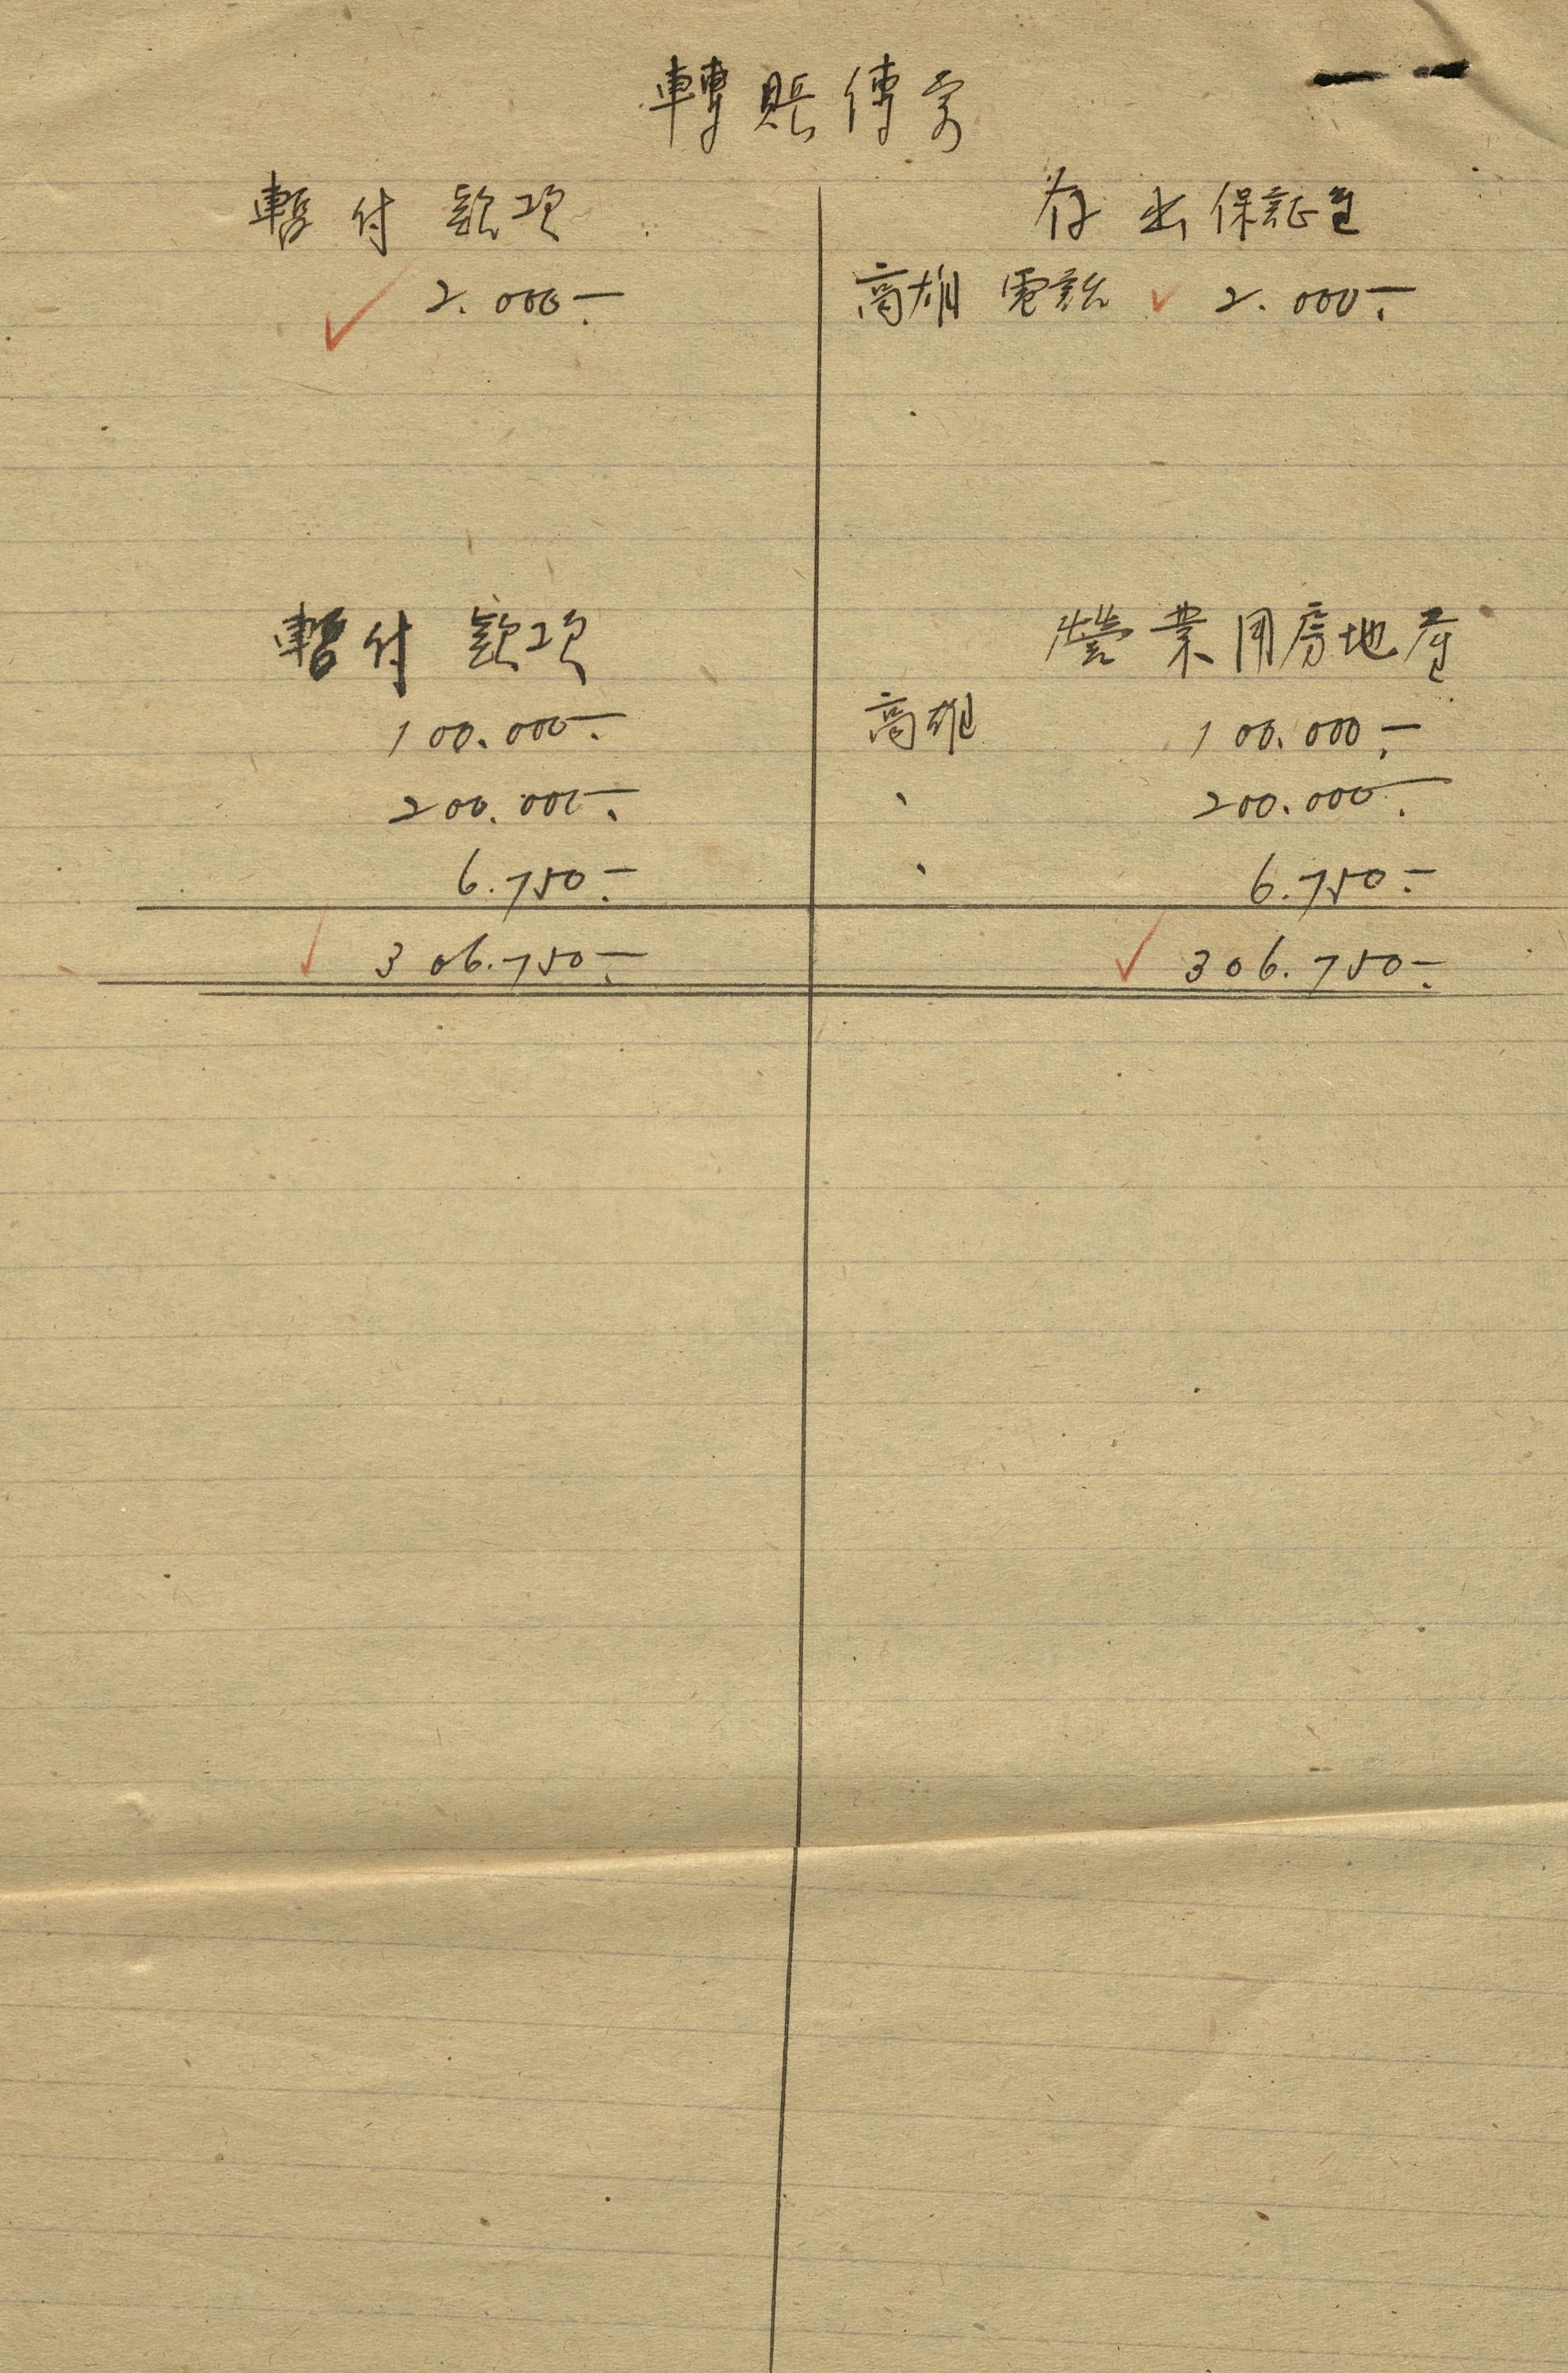 轉賬傳票
暫付款項 存出保証金
2.000.- 高雄電話 2.000.-
暫付款項 營業用房地產
100.000.- 高雄 100.000.-
200.000.- 、 200.000.-
6.750.- 、 6.750.-
306.750.- 306.750.-